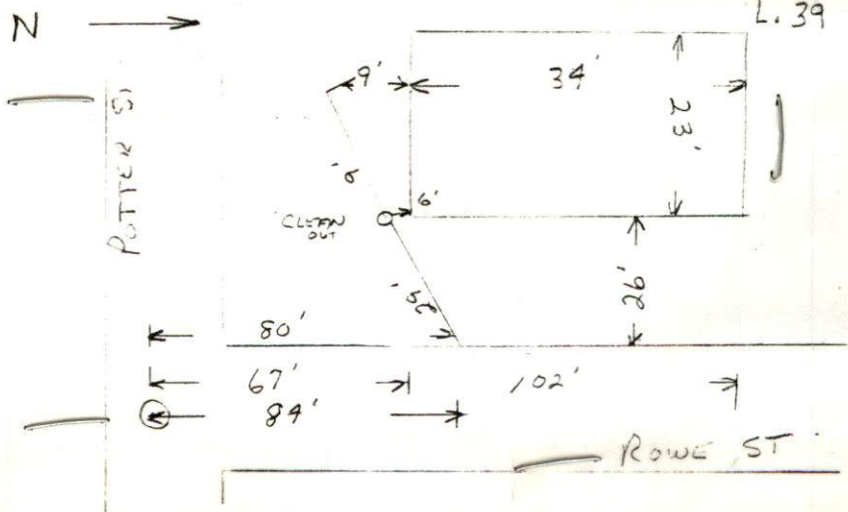 N
L. 39
9'
34'
23'
POTTER ST
6'
CLEAN
OUT
26'
80'
67'
102'
84'
ROWE ST